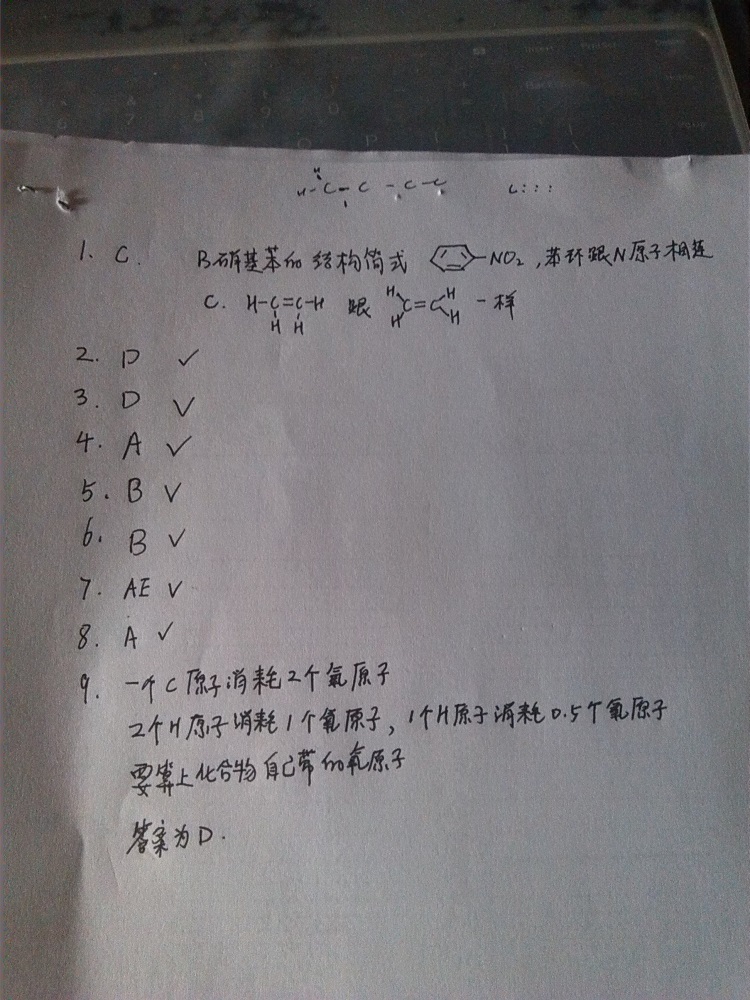 H
H-C-C-C-C C:::
1. C. B.硝基苯的结构简式 -NO2,苯环跟N原子相连
C. H-C=C-H 跟 H H C=C H H 一样
H H
2. D ✓
3. D ✓
4. A ✓
5. B ✓
6. B ✓
7. AE ✓
8. A ✓
9. 一个C原子消耗2个氧原子
2个H原子消耗1个氧原子,1个H原子消耗0.5个氧原子
要算上化合物自己带的氧原子
答案为D.